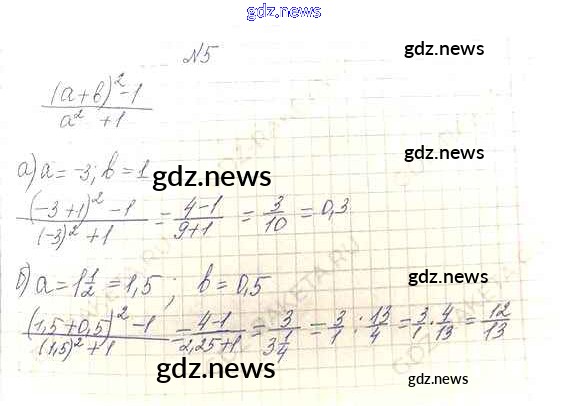 gdz.news
№5
gdz.news
(a+b)² -1 / a² +1
gdz.news
а) a = -3; b = 1
gdz.news
(-3+1)² -1 / (-3)² +1 = 4-1 / 9+1 = 3/10 = 0,3
gdz.news
б) a = 1 1/2 = 1,5 ; b = 0,5
gdz.news
(1,5+0,5)² -1 / (1,5)² +1 = 4-1 / 2,25+1 = 3 / 3 1/4 = 3/1 : 13/4 = 3/1 · 4/13 = 12/13
gdz.news
gdz.news
GDZ.RAKETA.RU
GDZ.RAKETA.RU